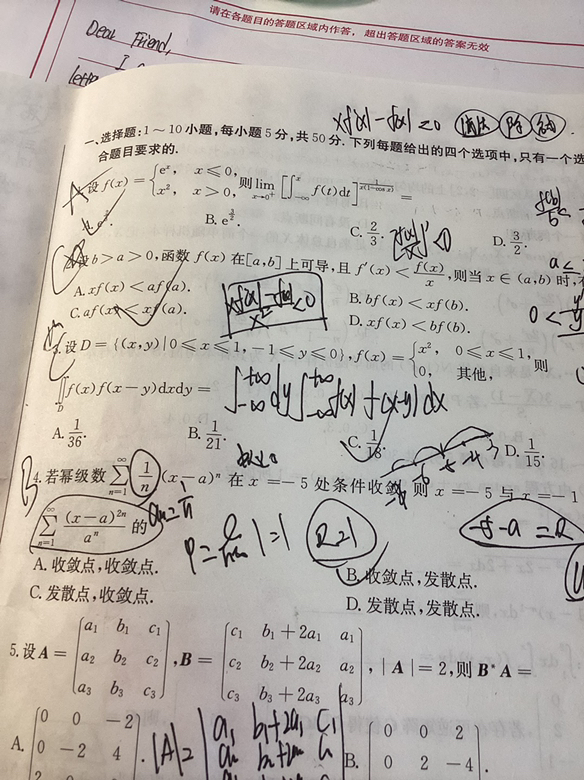 请在各题目的答题区域内作答，超出答题区域的答案无效
Dear Friend,
I
xf'(x)-f(x)≤0
一、选择题:1～10小题,每小题5分,共50分.下列每题给出的四个选项中,只有一个选
合题目要求的.
设f(x)={e^x, x≤0, x², x>0, 则lim_{x→0⁺}[∫_{-∞}^{x}f(t)dt]^{1/(x(1-cos x))}=
B. e^{3/2}.
C. 2/3.
D. 3/2.
设b>a>0,函数f(x)在[a,b]上可导,且f'(x)<f(x)/x,则当x∈(a,b)时,
A. xf(x)<af(a).
B. bf(x)<xf(b).
C. af(x)<xf(a).
D. xf(x)<bf(b).
(xf'(x)-f(x))/x²<0
设D={(x,y)|0≤x≤1,-1≤y≤0},f(x)={x², 0≤x≤1, 0, 其他, 则
∬_D f(x)f(x-y)dxdy=
∫_{-∞}^{+∞}dy∫_{-∞}^{+∞}f(x)f(x-y)dx
A. 1/36.
B. 1/21.
C. 1/18.
D. 1/15.
4.若幂级数∑_{n=1}^{∞}1/n(x-a)^n在x=-5处条件收敛,则x=-5与x=-1
∑_{n=1}^{∞}(x-a)^{2n}/a^n的
R=1
-5-a=R
A. 收敛点,收敛点.
B. 收敛点,发散点.
C. 发散点,收敛点.
D. 发散点,发散点.
5.设A=(a₁ b₁ c₁; a₂ b₂ c₂; a₃ b₃ c₃),B=(c₁ b₁+2a₁ a₁; c₂ b₂+2a₂ a₂; c₃ b₃+2a₃ a₃),|A|=2,则B*A=
A. (0 0 -2; 0 -2 4
B. (0 0 2; 0 2 -4
|A|=